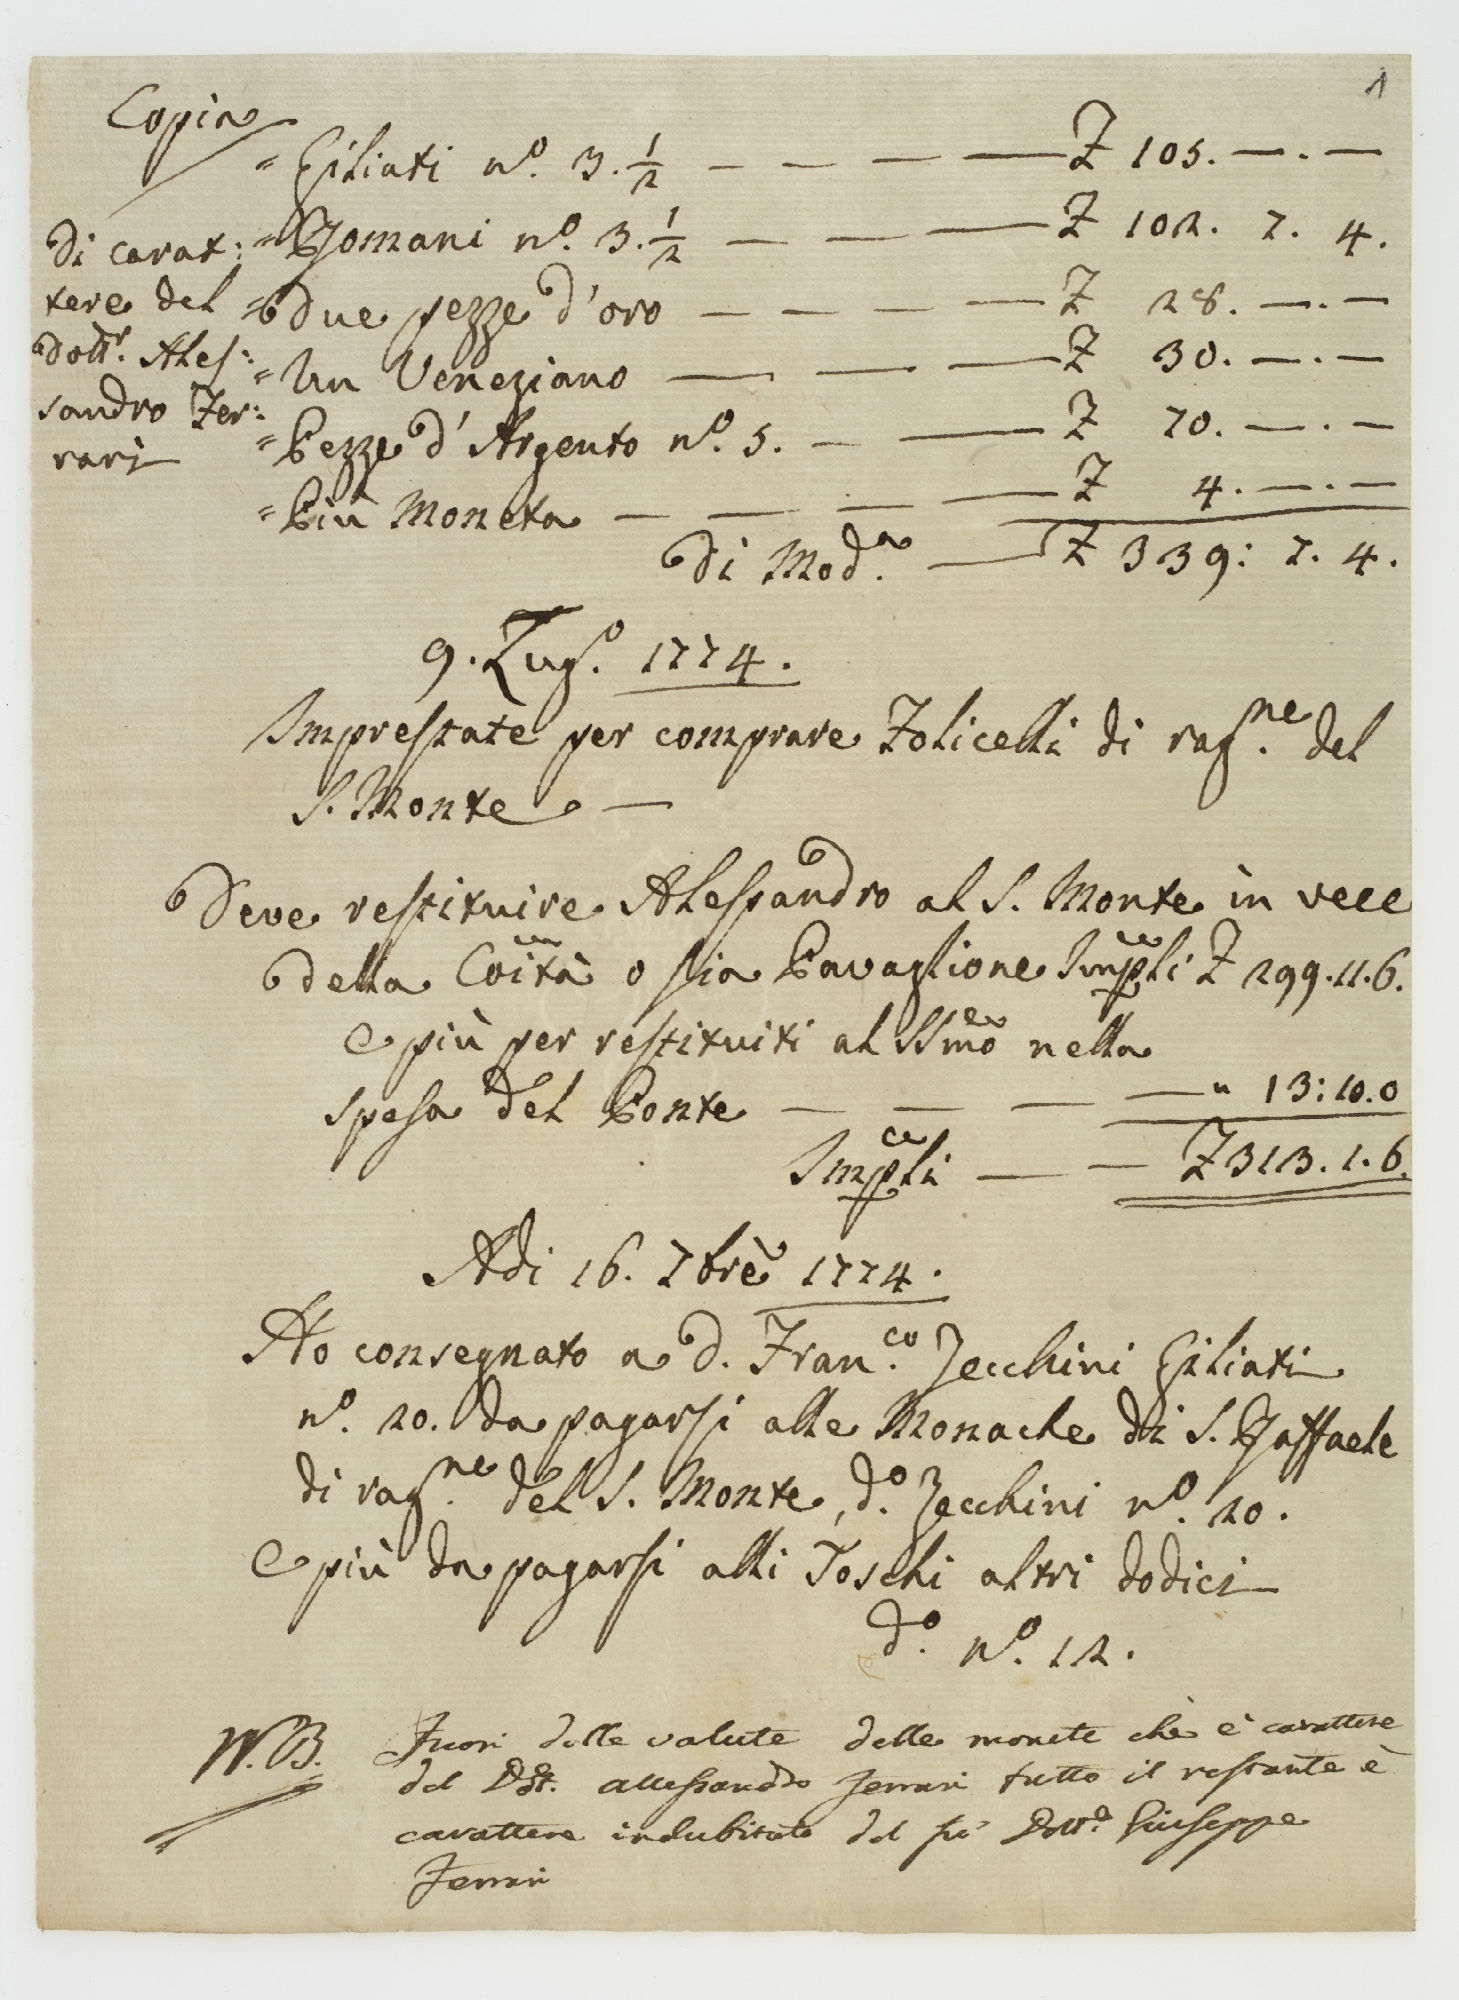 1
Copia
= Giliati n.º 3. 1/2 — — — — £ 105. — . —
= Romani n.º 3. 1/2 — — — — £ 102. 7. 4.
= Due pezze d'oro — — — — £ 28. — . —
= Un Veneziano — — — — £ 30. — . —
= Pezze d'Argento n.º 5. — — £ 70. — . —
= Più Moneta — — — — £ 4. — . —
Di carat:
tere del
Dottr. Ales:
sandro Fer:
rari
Di Mod.a — £ 339: 7. 4.
9. Lug.o 1774.
Imprestate per comprare Folicelli di rag.ne del
S. Monte —
Deve restituire Alessandro al S. Monte in vece
della Coità o sia Pavaglione Impli £ 299.11.6.
E più per restituiti al SSmo nella
spesa del Ponte — — — — " 13:10.0
Impli — — £ 313. 1. 6.
Adi 16. 7bre 1774.
Ho consegnato a D. Fran.co Zecchini Giliati
n.º 20. da pagarsi alle Monache di S. Raffaele
di rag.ne del S. Monte, d.o Zecchini n.º 20.
E più da pagarsi alli Toschi altri dodici
d.o N.º 12.
N.B. Fuori delle valute delle monete che è carattere
del Dott. Allessandro Ferrari tutto il restante è
carattere indubitato del fu Dott.e Giuseppe
Ferrari